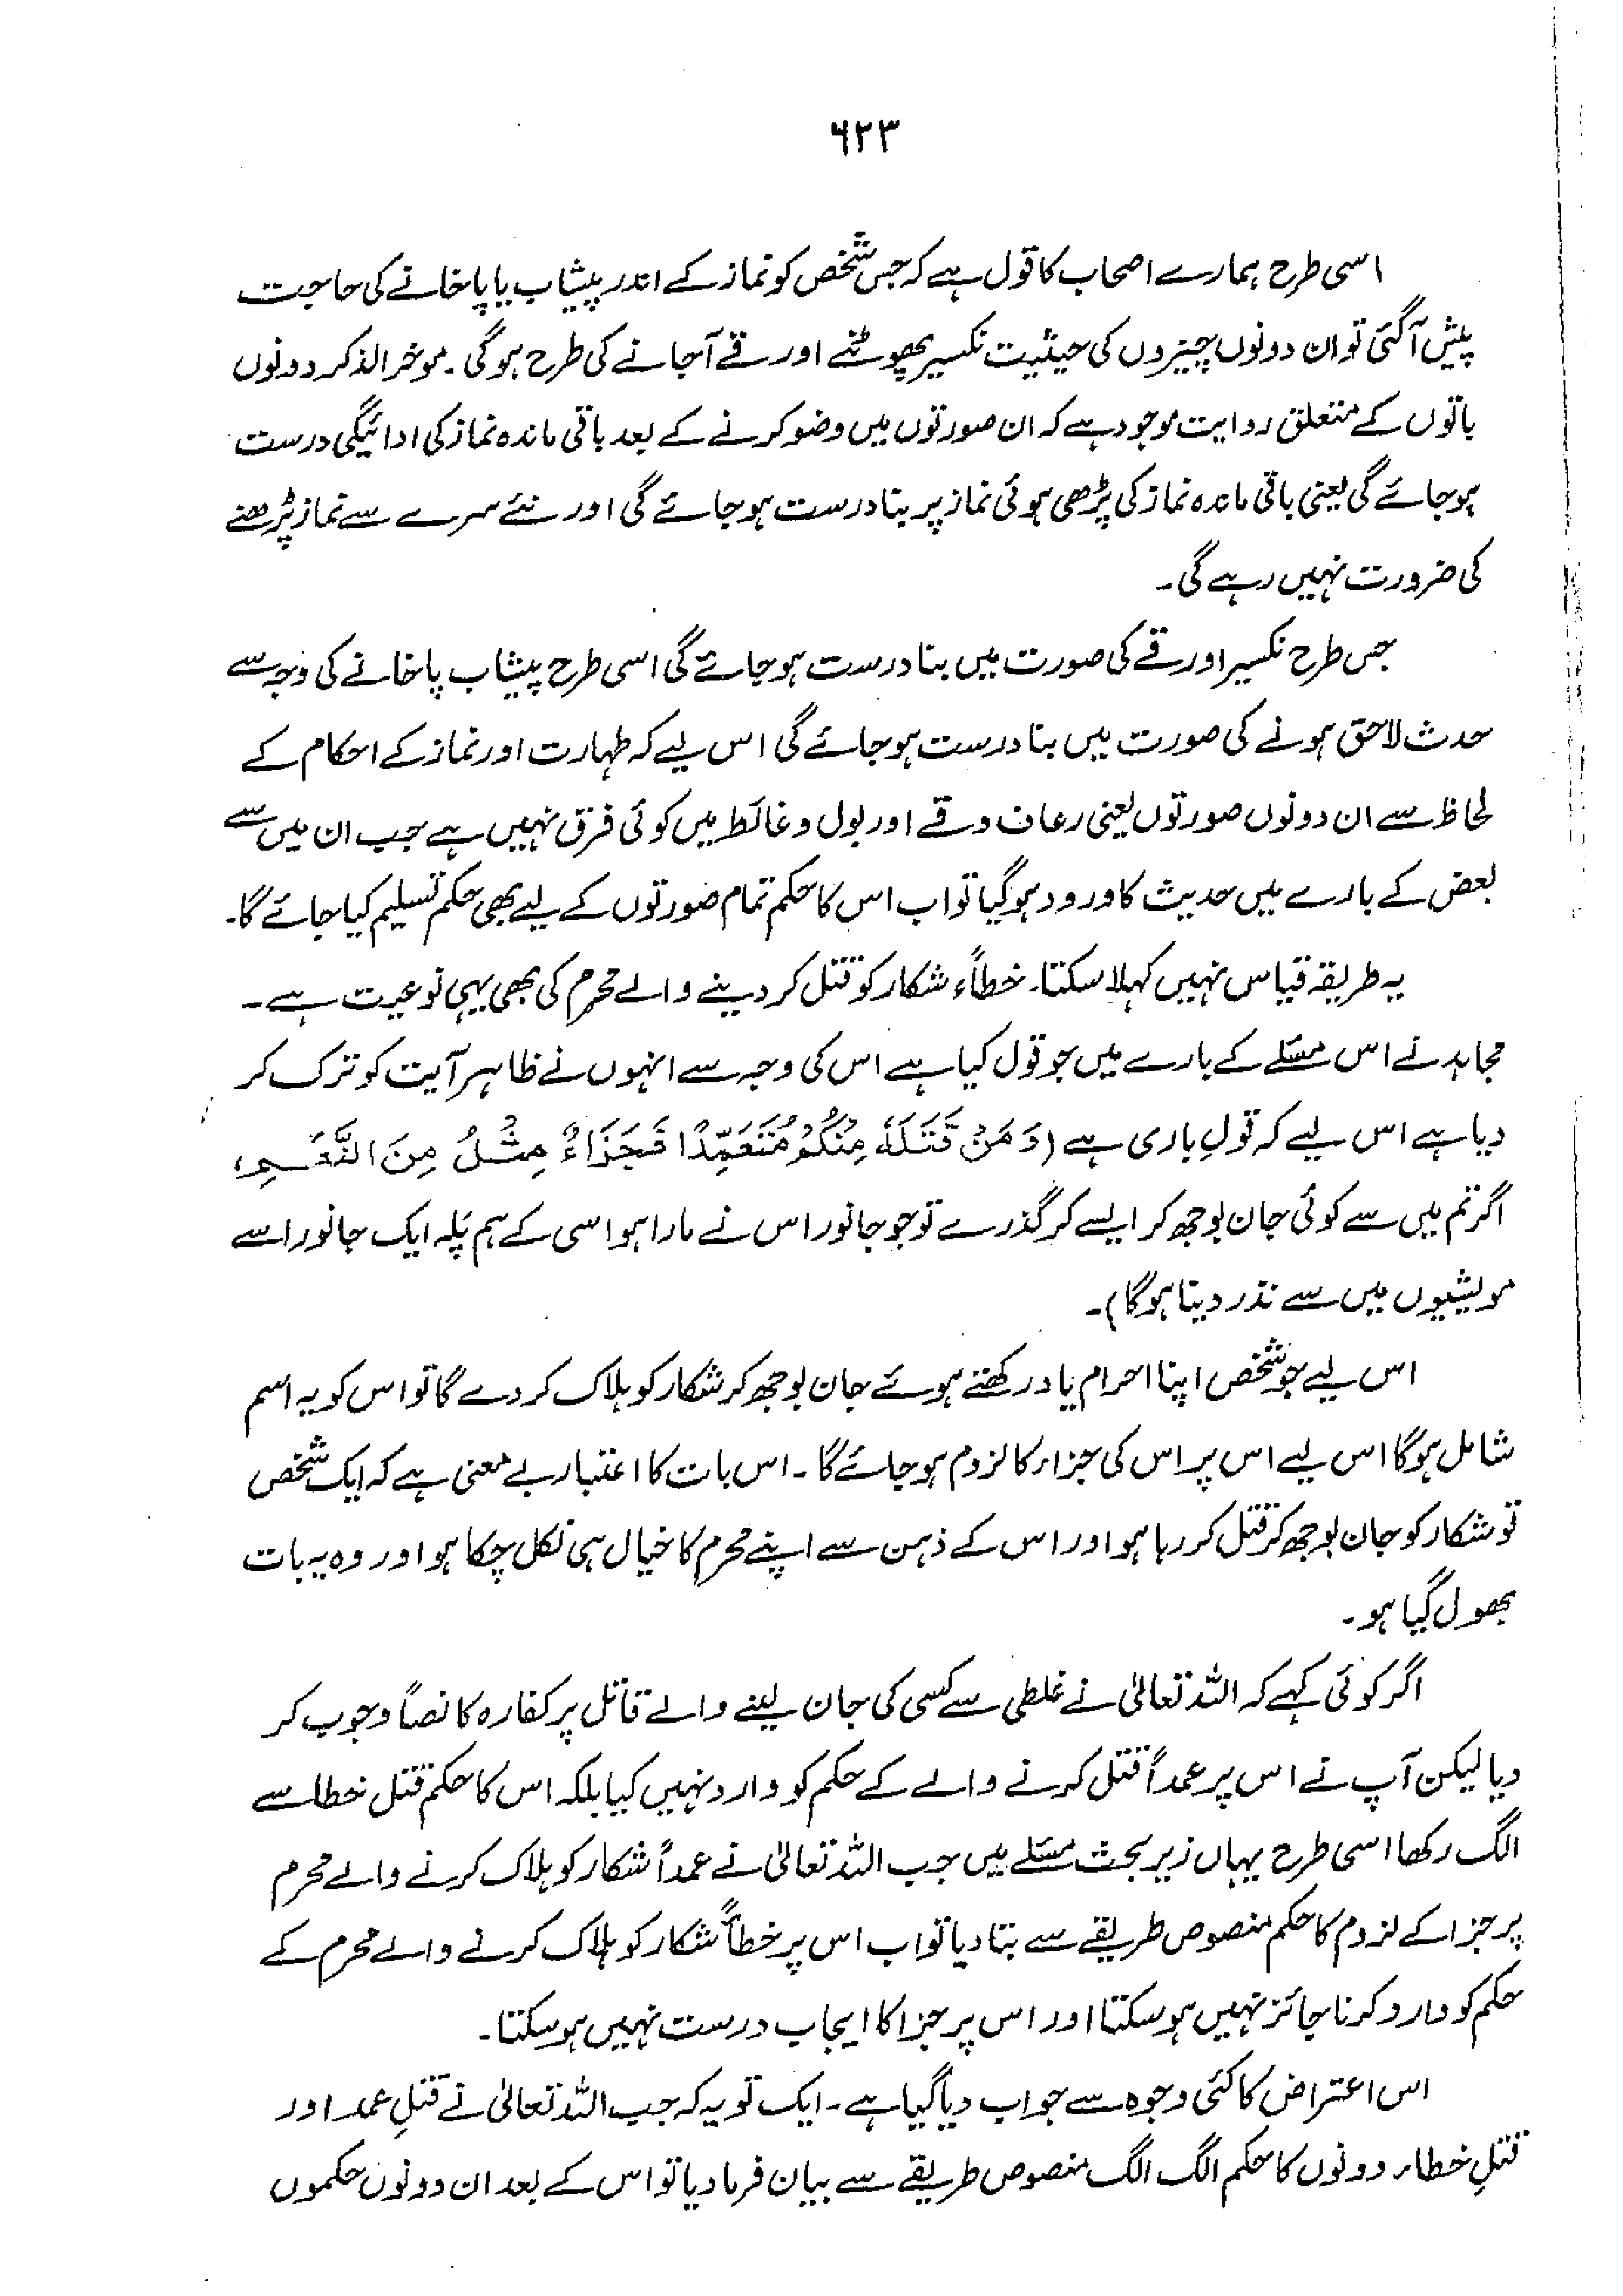 ۶۲۳
اسی طرح ہمارے اصحاب کا قول ہے کہ جس شخص کو نماز کے اندر پیشاب یا پاخانے کی حاجت
پیش آگئی تو ان دونوں چیزوں کی حیثیت نکسیر پھوٹنے اور قے آجانے کی طرح ہوگی۔ موخر الذکر دونوں
باتوں کے متعلق روایت موجود ہے کہ ان صورتوں میں وضو کرنے کے بعد باقی ماندہ نماز کی ادائیگی درست
ہوجائے گی یعنی باقی ماندہ نماز کی پڑھی ہوئی نماز پر بنا درست ہوجائے گی اور نئے سرے سے نماز پڑھنے
کی ضرورت نہیں رہے گی۔
جس طرح نکسیر اور قے کی صورت میں بنا درست ہوجائے گی اسی طرح پیشاب پاخانے کی وجہ سے
حدث لاحق ہونے کی صورت میں بنا درست ہوجائے گی اس لیے کہ طہارت اور نماز کے احکام کے
لحاظ سے ان دونوں صورتوں یعنی رعاف و قے اور بول و غائط میں کوئی فرق نہیں ہے جب ان میں سے
بعض کے بارے میں حدیث کا ورود ہوگیا تو اب اس کا حکم تمام صورتوں کے لیے بھی حکم تسلیم کیا جائے گا۔
یہ طریقہ قیاس نہیں کہلا سکتا۔ خطاًء شکار کو قتل کر دینے والے محرم کی بھی یہی نوعیت ہے۔
مجاہد نے اس مسئلے کے بارے میں جو قول کیا ہے اس کی وجہ سے انہوں نے ظاہر آیت کو ترک کر
دیا ہے اس لیے کہ قولِ باری ہے (وَمَنْ قَتَلَهٗ مِنْكُمْ مُّتَعَمِّدًا فَجَزَاءٌ مِثْلُ مِنَ النَّعَمِ،
اگر تم میں سے کوئی جان بوجھ کر ایسے کر گذرے تو جو جانور اس نے مارا ہو اسی کے ہم پَلہ ایک جانور اسے
مویشیوں میں سے نذر دینا ہوگا)۔
اس لیے جو شخص اپنا احرام یاد رکھتے ہوئے جان بوجھ کر شکار کو ہلاک کر دے گا تو اس کو یہ اسم
شامل ہوگا اس لیے اس پر اس کی جزاء کا لزوم ہوجائے گا۔ اس بات کا اعتبار بے معنی ہے کہ ایک شخص
تو شکار کو جان بوجھ کر قتل کر رہا ہو اور اس کے ذہن سے اپنے محرم کا خیال ہی نکل چکا ہو اور وہ یہ بات
بھول گیا ہو۔
اگر کوئی کہے کہ اللہ تعالیٰ نے غلطی سے کسی کی جان لینے والے قاتل پر کفارہ کا نصاً وجوب کر
دیا لیکن آپ نے اس پر عمداً قتل کرنے والے کے حکم کو وارد نہیں کیا بلکہ اس کا حکم قتل خطا سے
الگ رکھا اسی طرح یہاں زیر بحث مسئلے میں جب اللہ تعالیٰ نے عمداً شکار کو ہلاک کرنے والے محرم
پر جزا کے لزوم کا حکم منصوص طریقے سے بتا دیا تو اب اس پر خطأً شکار کو ہلاک کرنے والے محرم کے
حکم کو وارد کرنا جائز نہیں ہوسکتا اور اس پر جزا کا ایجاب درست نہیں ہوسکتا۔
اس اعتراض کا کئی وجوہ سے جواب دیا گیا ہے۔ ایک تو یہ کہ جب اللہ تعالیٰ نے قتلِ عمد اور
قتلِ خطاء دونوں کا حکم الگ الگ منصوص طریقے سے بیان فرما دیا تو اس کے بعد ان دونوں حکموں